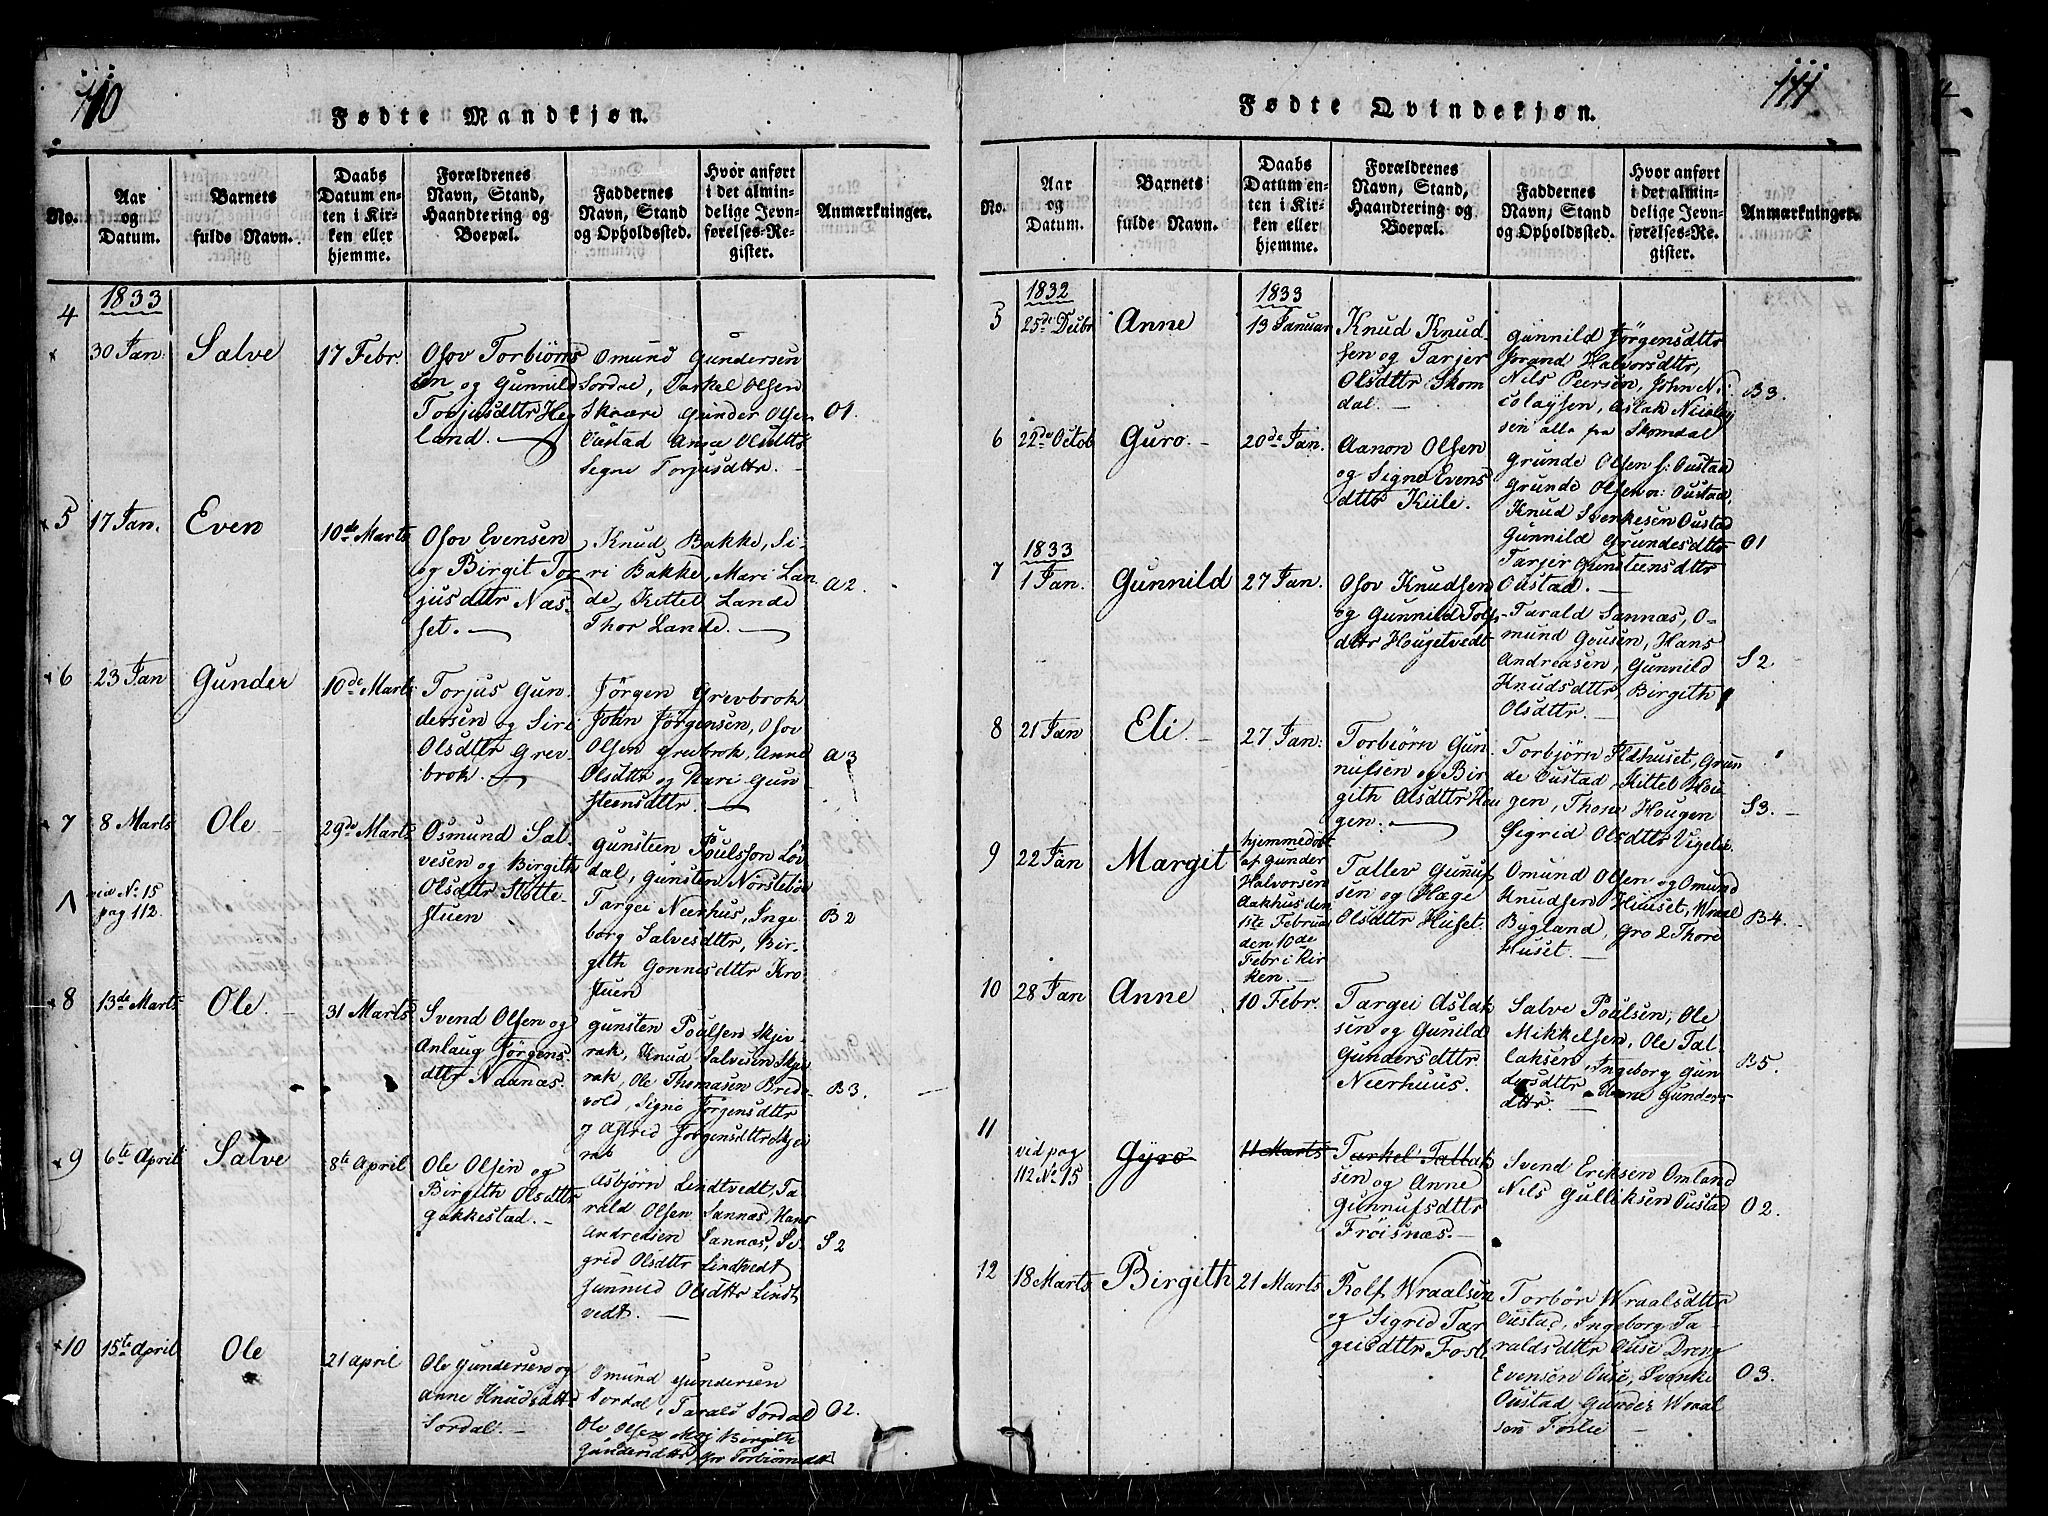 110
Fødte Mandkjøn.
No.
Aar
og
Datum.
Barnets
fulde Navn.
Daabs
Datum en-
ten i Kir-
ken eller
hjemme.
Forældrenes
Navn, Stand,
Haandtering og
Boepæl.
Faddernes
Navn, Stand
og Opholdssted.
Hvor anført
i det almin-
delige Jevn-
førelses-Re-
gister.
Anmærkninger.
4
1833
30 Jan:
Salve
17 Febr.
Osov Torbiørns
sen og Gunnild
Torjusdttr Heg
land.
Omund Gundersen
Sordae, Tarkel Olsen
Skaare Gunder Olsen
Oustad Anna Olsdttr
Signe Torjusdttr.
O1.
5
17 Jan.
Even
10de Marts
Osov Evensen
og Birgit Tor
jusdttr Næs-
set.
Knud Bakke, Si-
ri Bakke, Mari Lan
de, Kettel Lande
Thor Lande.
A2.
6
23 Jan
Gunder
10de Marts
Torjus Gun-
dersen og Siri
Olsdttr Grev-
brok.
Jörgen Grevbrok
John Jörgensen, Osov
Olsen Grevbrok, Anne
Olsdttr og Kari Gun
steensdttr.
A3
7
8 Marts
Ole
29de Marts
Osmund Sal-
vesen og Birgith
Olsdttr Slotte-
stuen
vid No 15
pag 112.
Gunsteen Poulsson Löv
dal, Gunsten Nörstebö
Targei Neerhus, Inge
borg Salvesdttr, Bir-
gith Gonnesdttr Kro
stuen
B2
8
13de Marts
Ole
31 Marts
Svend Olsen og
Anlaug Jörgens
dttr Adanæs.
Gunsten Poulsen Skjev
rak, Knud Salvesen Skje
rak, Ole Thomasen Brede
vold, Signe Jörgensdttr
og Astrid Jörgensdttr
B3.
9
6te April
Salve
8te April
Ole Olsen og
Birgith Olsdttr
Gakkestad.
Asbjörn Lindtvedt, Ta-
rald Olsen Sannæs, Hans
Andreasen Sannæs, Si-
grid Olsdttr Lindtvedt
Gunnild Olsdttr Lindt
vedt.
S2
10
15te April
Ole
21 April
Ole Gundersen og
Anne Knudsdttr
Sordal.
Omund Gundersen
Sordal, Tarald Sordal
Ole Olsen Moj Birgithe
Gundersdttr, Gro Torbiörnsdtt
O2.
111
Fødte Qvindekjøn.
No.
Aar
og
Datum.
Barnets
fulde Navn.
Daabs
Datum en-
ten i Kir-
ken eller
hjemme.
Forældrenes
Navn, Stand,
Haandtering og
Boepæl.
Faddernes
Navn, Stand
og Opholdssted.
Hvor anført
i det almin-
delige Jevn-
førelses-Re-
gister.
Anmærkninger.
5
1832
25de Decbr
Anne
1833
13 Januar
Knud Knud-
sen og Tarjer
Olsdttr Skom
dal.
Gunnild Jörgensdttr
Jorand Halvorsdttr,
Nils Peersen, John Ni
colaysen, Aslak Nicolay
sen alle fra Skomdal
B3.
6
22de Octob
Guro.
20de Jan.
Aanon Olsen
og Signe Evens
dttr Kiile.
Grunde Olsen s: Oustad
Grunde Olsen n: Oustad,
Knud Svenkesen Oustad
Gunnild Grundesdttr
Tarjer Gunsteensdttr
Oustad.
O1
7
1833
1 Jan.
Gunnild
27 Jan.
Osov Knudsen
og Gunnild Tolfs
dttr Hougetvedt
Tarald Sannæs, O-
mund Gousen, Hans
Andreasen, Gunnild
Knudsdttr, Birgith
Olsdttr.
S2.
8
21 Jan
Eli.
27 Jan:
Torbiörn Gun-
nufsen og Bir-
gith Olsdttr Hou
gen:
Torbjörn Ildhuset, Grun
de Oustad, Kittel Hou
gen, Thore Hougen
Sigrid Olsdttr Vigeli.
S3.
9
22 Jan
Margit
hjemmedöbt
af Gunder
Halvorsen
Aakhus den
1ste Februar
den 10de
Febr i Kir
ken.
Tallev Gunuf
sen og Hæge
Olsdttr Huset.
Omund Olsen og Omund
Knudsen Huuset, Wraal
Bygland, Gro & Thore
Huset.
B4.
10
28 Jan
Anne
10 Febr.
Targei Aslak
sen og Gunild
Gundersdttr
Neerhuus.
Salve Poulsen, Ole
Mikkelsen, Ole Tal-
laksen, Ingeborg Gun
dersdttr Anne Gunders
dttr.
B5.
11
vid pag
112 No 15
Gyro
11 Marts
Tarkel Tallak
sen og Anne
Gunnufsdttr
Fröisnæs.
Svend Eriksen Omland
Nils Gulliksen Oustad
O2.
12
18 Marts
Birgith
21 Marts
Rolf Wraalsen
og Sigrid Tar
geisdttr Fosl.
Torbör Wraalsdttr
Oustad, Ingeborg Ta-
raldsdttr Ouse Dreng
Evensen Ouse, Svenke
Oustad Gunder Wraal
sen Foslie
O3.